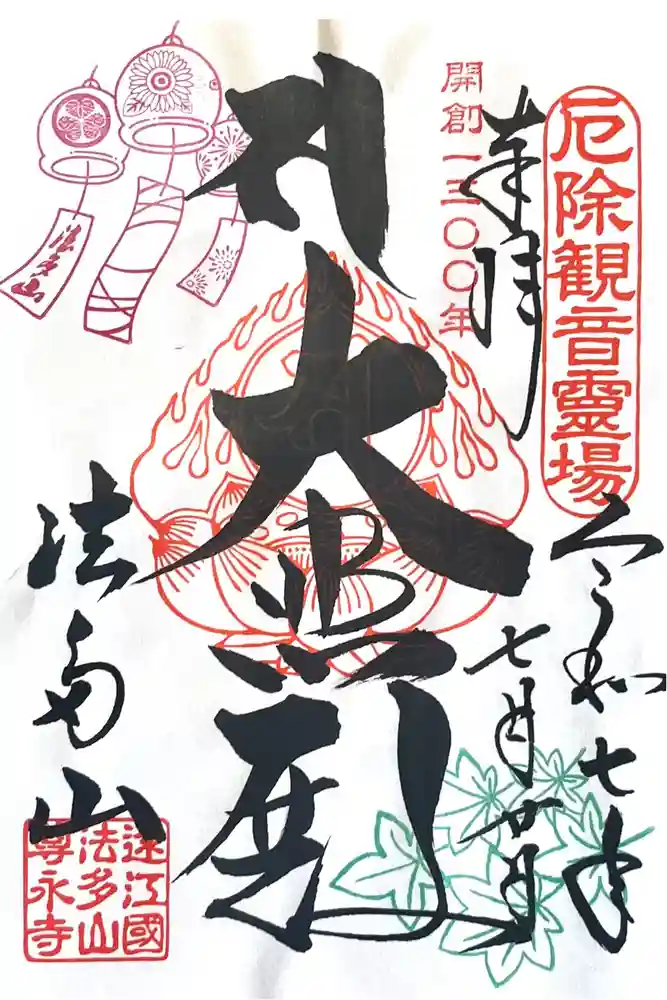 厄除観音霊場
奉拝
開創一三〇〇年
令和七年
七月廿日
大悲殿
法多山
法多山
遠江國
法多山
尊永寺